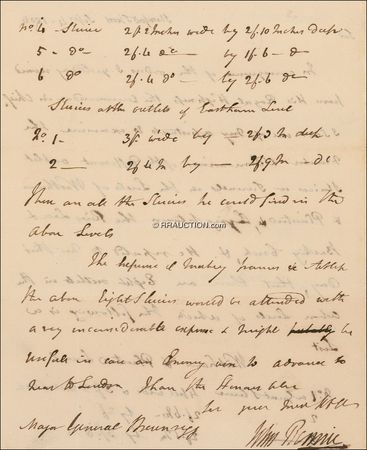 No 4 - Sluice 2f. 2 Inches wide by 2f. 10 Inches deep
5 - do 2f. 4 do by 1f. 6 - d
6 do 2f. 4 do - by 2f. 6 do
Sluices at the outlets of Eastham Level
No. 1 - 3f. wide by 2f. 3 In deep
2 - 2f. 4 In by - 2f. 9 In - do
These are all the Sluices he could find in the
above Levels
© RRAUCTION.COM
The expense of making frames &c to
the above Eight Sluices would be attended with
a very inconsiderable expense & might be
useful in case an Enemy were to advance to
near to London I have the Honour to be
Sir your most
Major General Brownrigg
John Rennie